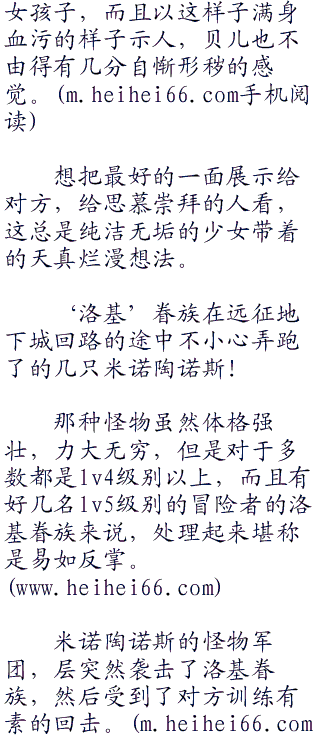 女孩子，而且以这样子满身
血污的样子示人，贝儿也不
由得有几分自惭形秽的感
觉。(m.heihei66.com手机阅
读)
想把最好的一面展示给
对方，给思慕崇拜的人看，
这总是纯洁无垢的少女带着
的天真烂漫想法。
‘洛基’眷族在远征地
下城回路的途中不小心弄跑
了的几只米诺陶诺斯！
那种怪物虽然体格强
壮，力大无穷，但是对于多
数都是lv4级别以上，而且有
好几名lv5级别的冒险者的洛
基眷族来说，处理起来堪称
是易如反掌。
(www.heihei66.com)
米诺陶诺斯的怪物军
团，层突然袭击了洛基眷
族，然后受到了对方训练有
素的回击。(m.heihei66.com